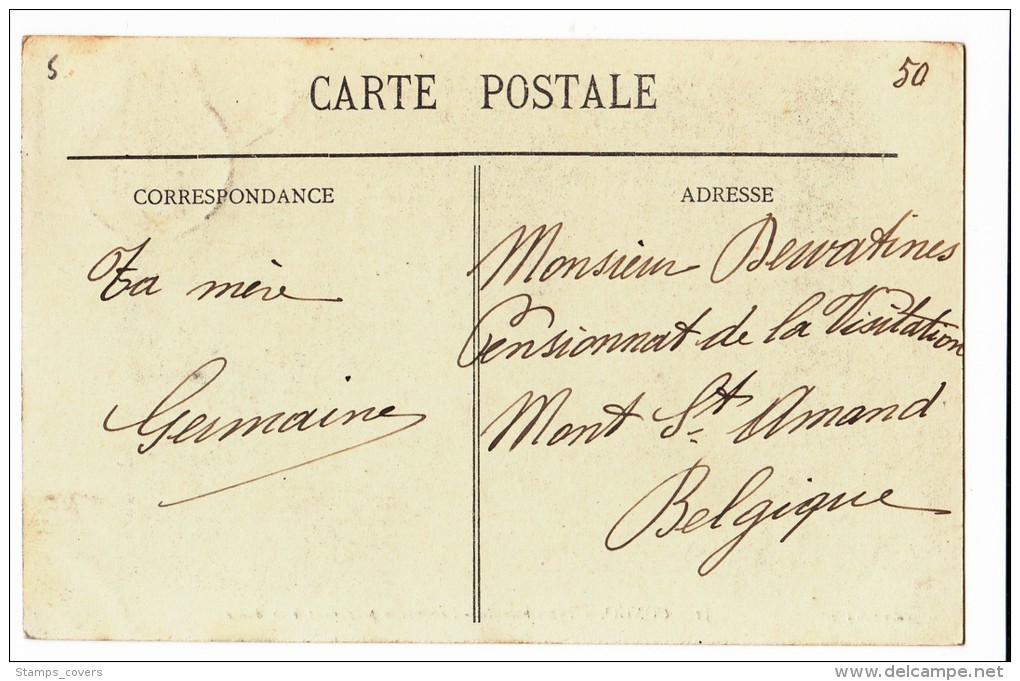 5
50
CARTE POSTALE
CORRESPONDANCE
Ta mère
Germaine
ADRESSE
Monsieur Dewatines
Pensionnat de la Visitation
Mont St Amand
Belgique
Stamps_covers
www.delcampe.net